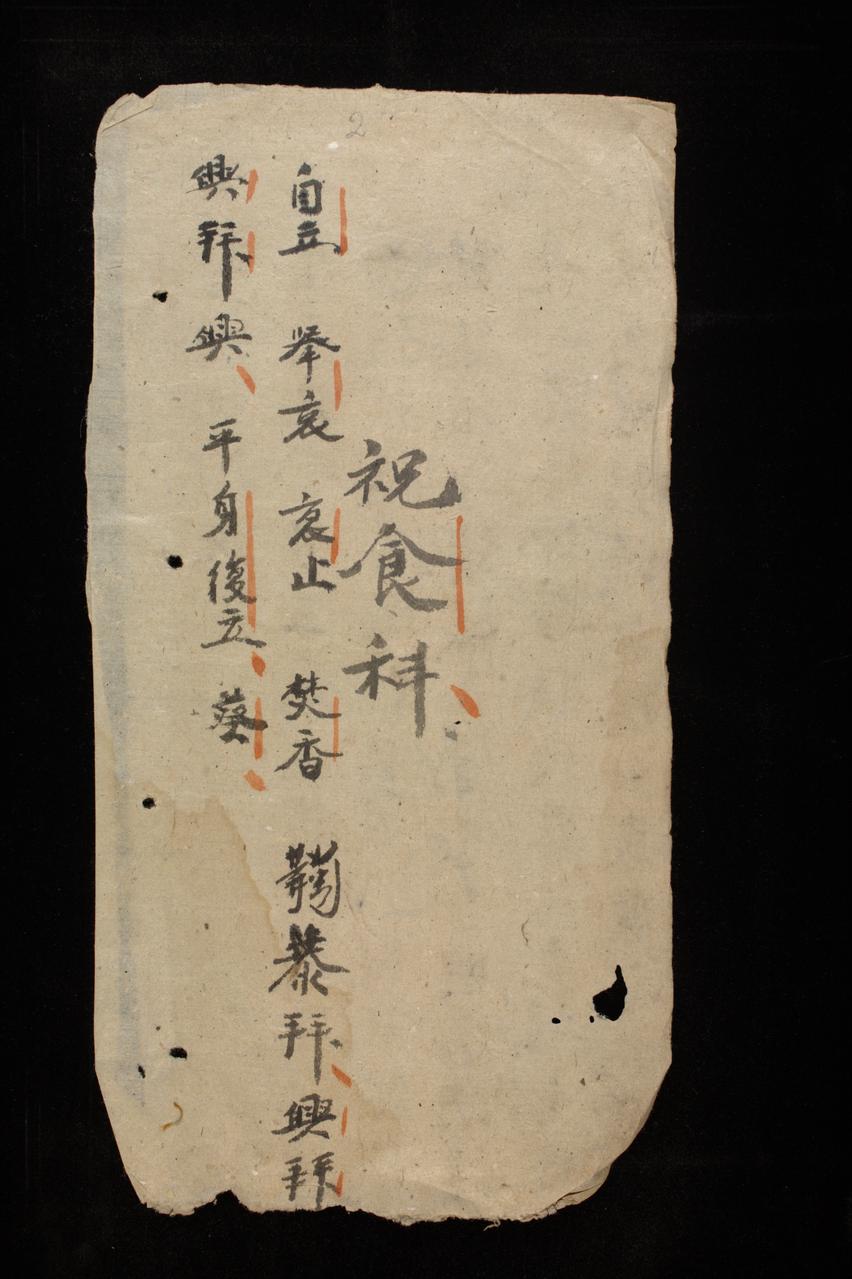 2
祝食科
自立 举哀 哀止 焚香 鞠恭拜興拜
興拜興 平身復立 葵